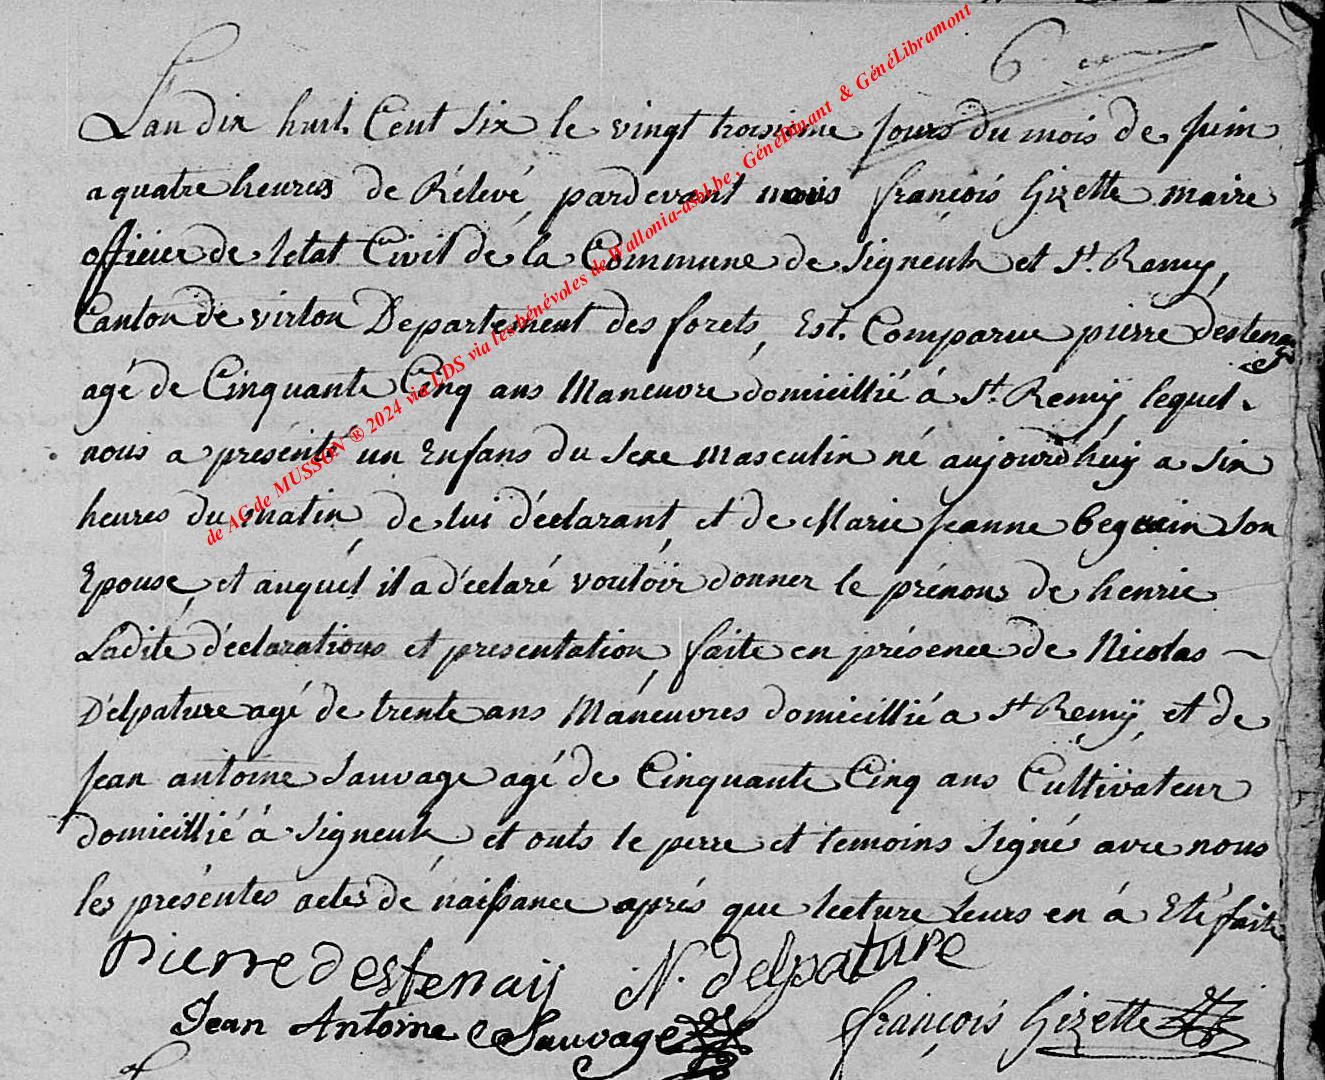 6.eme
L'an dix huit Cent Six le vingt troisieme Jours du mois de Juin
a quatre heures de Rélevé, pardevant nous françois Gizette maire
officier de letat Civil de la Commune de Signeulx et St. Remy,
Canton de virton Departement des forets, Est. Comparue pierre destenay
agé de Cinquante Cinq ans Maneuvre domicillié á St. Remÿ lequel
nous a presenté un Enfans du Sexe masculin né aujourd'huy a Six
heures du matin, de lui déclarant, et de Marie Jeanne beguin Son
Epouse, et auquel il a déclaré vouloir donner le prénoms de henrie
Ladite déclarations et presentation, faite en présence de Nicolas
Délpature agé de trente ans Máneuvres domicillié a St Remÿ, et de
Jean antoine Sauvage agé de Cinquante Cinq ans Cultivateur
domicillié á Signeulx et onts le perre et temoins Signé avec nous
les présentes actes de naissance aprés que lecture leurs en á Eté faite
Pierre destenaij N. delpature
Jean Antoine Sauvage françois Gizette
de AC de MUSSON ® 2024 via LDS via les bénévoles de Wallonia-asbl.be , GénéDinant & GénéLibramont